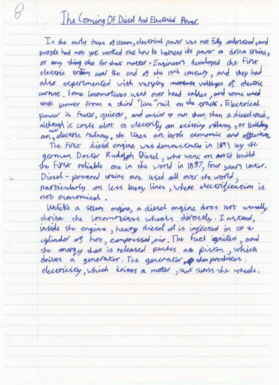 8
The Coming Of Diesel And Electrical Power
In the early days of steam, electrical power was not fully understood, and
people had not yet worked out how to harness its power to drive trains,
or any thing else for that matter. Engineers developed the first
electric train near the end of the 19th century, and they had
also experimented with varying voltages of electric
current. Some locomotives used over head cables, and some used
used power from a third "live" rail on the track. Electrical
power is faster, quieter, and easier to run than a diesel train,
although it costs alot to electrify an existing railway, or building
an electric railway, the lines are both economic and effective.
The first diesel engine was demonstrated in 1893 by the
german Doctor Rudolph Diesel, who went on to build
the first reliable one in the world in 1897, four years later.
Diesel-powered trains are used all over the world,
particularly on less busy lines, where electrification is
not economical.
Unlike a steam engine, a diesel engine does not usually
drive the locomotives wheels directly. Instead,
inside the engine, heavy diesel oil is injected in to a
cylinder of hot, compressed air. The fuel ignites, and
the energy that is released pushes a piston, which
drives a generator. The generator then produces
electricity, which drives a motor, that turns the wheels.